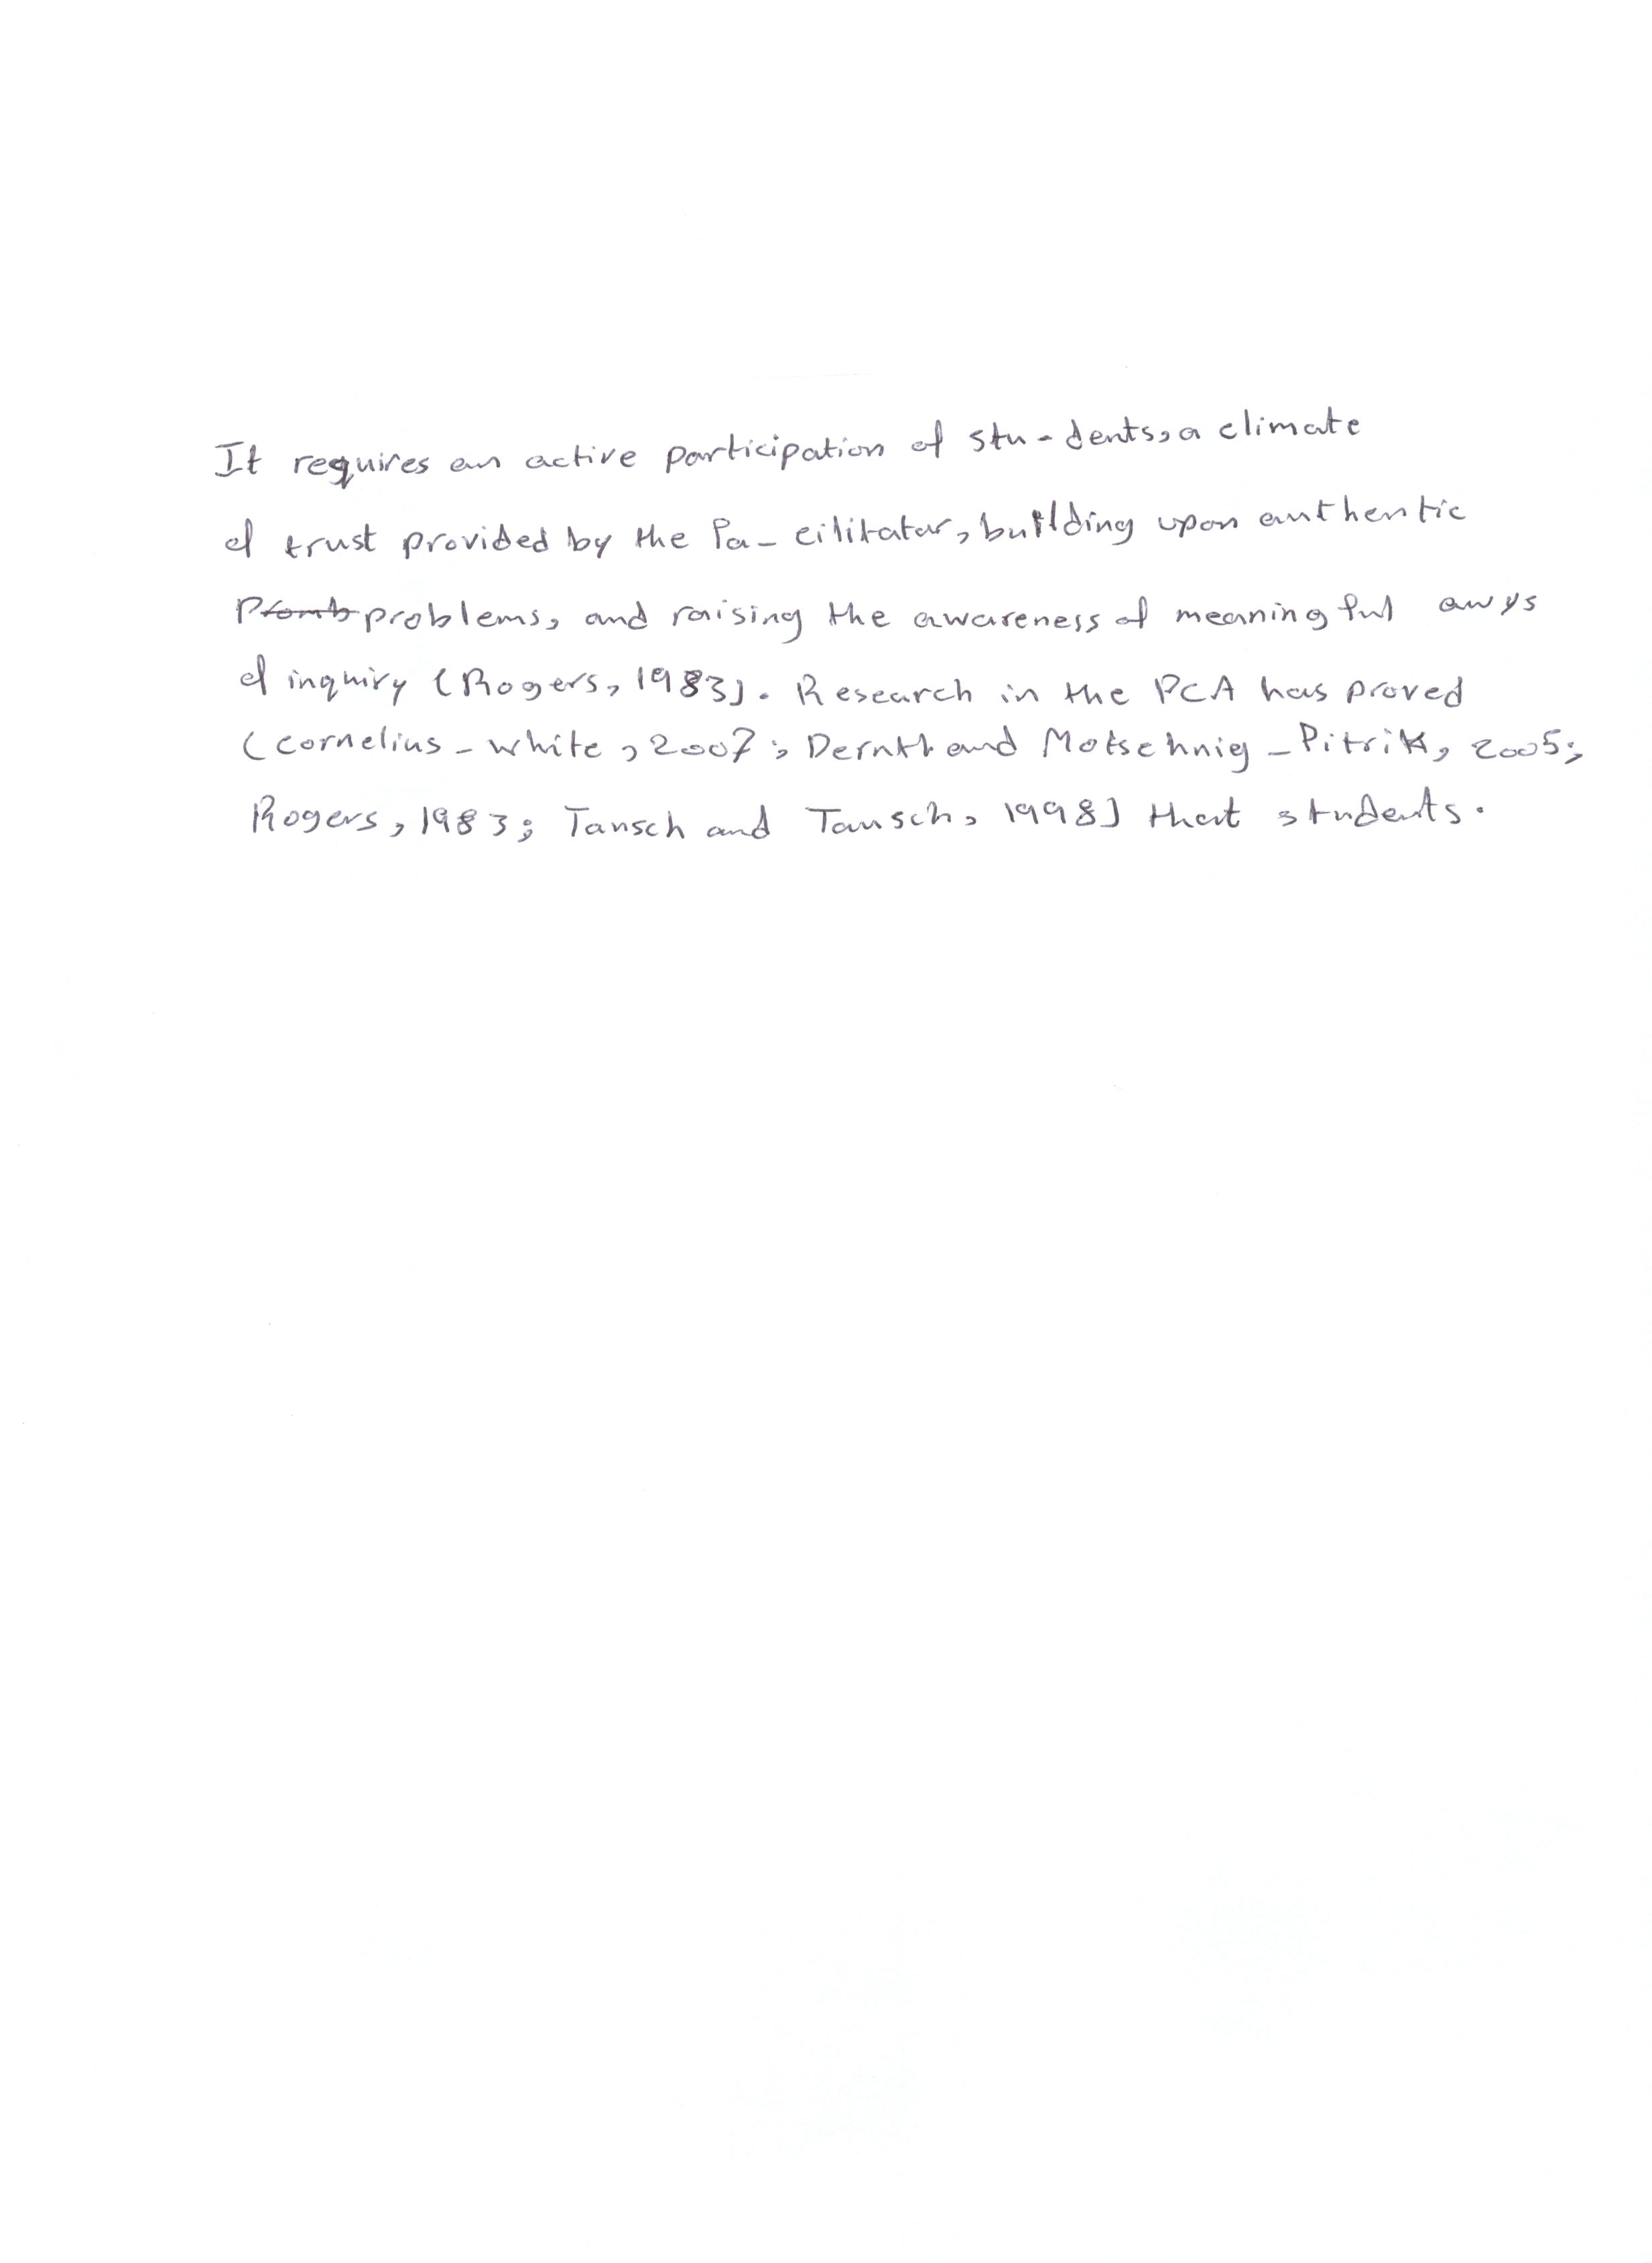 It requires an active participation of stu-dents, a climate
of trust provided by the fa-cilitator, building upon authentic
problems, and raising the awareness of meaningful awys
of inquiry (Rogers, 1983). Research in the PCA has proved
(Cornelius-White, 2007; Derntl and Motschnig-Pitrik, 2005;
Rogers, 1983; Tausch and Tausch, 1998) that students.